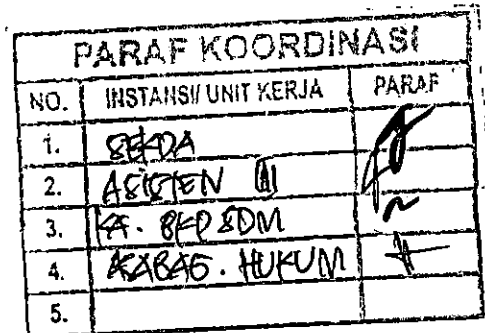 PARAF KOORDINASI
NO. INSTANSI/ UNIT KERJA PARAF
1. SEKDA
2. ASISTEN III
3. KA. BKD SDM
4. KABAG. HUKUM
5.